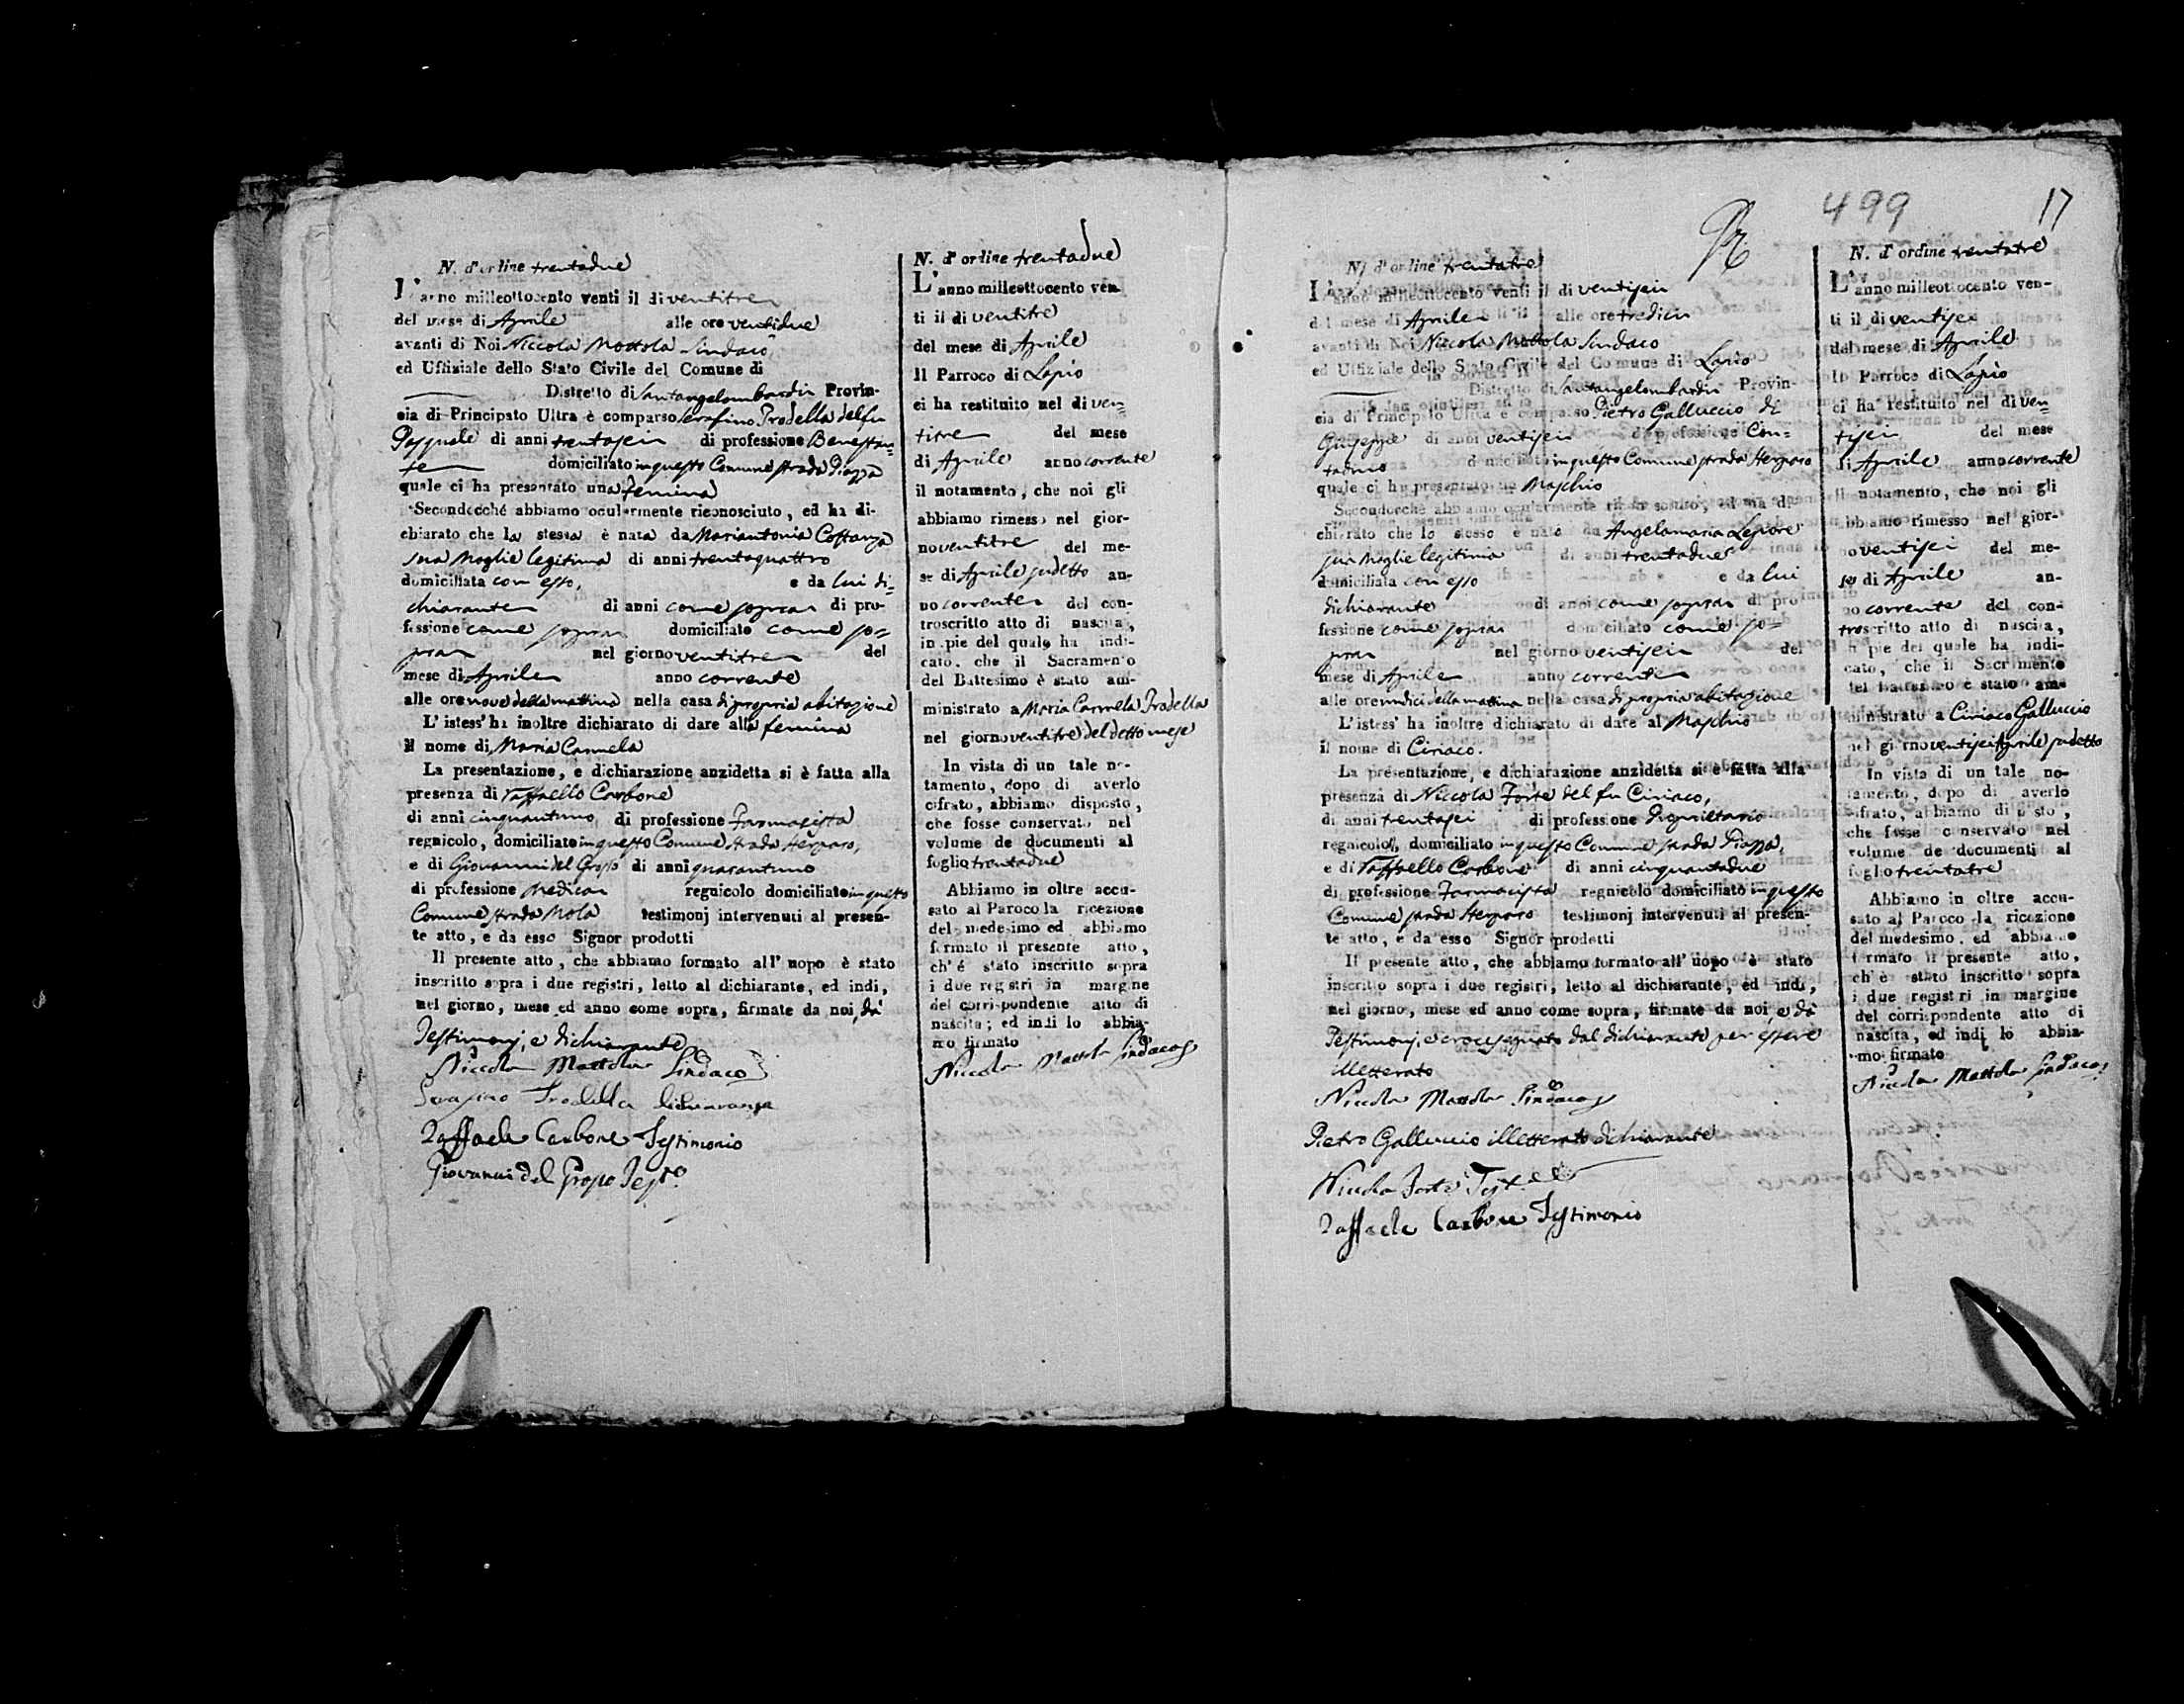 N. d'ordine trentadue
L'anno milleottocento venti il di ventitre
del mese di Aprile alle ore ventidue
avanti di Noi Niccola Mottola Sindaco
ed Uffiziale dello Stato Civile del Comune di
Distretto di Santangelombardi Provin-
cia di Principato Ultra è comparso Serafino Trodella del fu
Pasquale di anni trentasei di professione Benestan=
te domiciliato in questo Comune strada Piazza
quale ci ha presentato una femina
Secondocché abbiamo ocularmente riconosciuto, ed ha di-
chiarato che la stessa è nata da Mariantonia Costanza
sua Moglie legitima di anni trentaquattro
domiciliata con esso, e da lui di=
chiarante di anni come sopra di pro-
fessione come sopra domiciliato come so=
pra nel giorno ventitre del
mese di Aprile anno corrente
alle ore nove della mattina nella casa di propria abitazione
L'istess' ha inoltre dichiarato di dare alla femina
il nome di Maria Carmela
La presentazione, e dichiarazione anzidetta si è fatta alla
presenza di Raffaello Carbone
di anni cinquantuno di professione Farmacista
regnicolo, domiciliato in questo Comune strada Herparo,
e di Giovanni del Grosso di anni quarantuno
di professione Medico regnicolo domiciliato in questo
Comune strada Mola testimonj intervenuti al presen-
te atto, e da esso Signor prodotti
Il presente atto, che abbiamo formato all' uopo è stato
inscritto sopra i due registri, letto al dichiarante, ed indi,
nel giorno, mese ed anno come sopra, firmate da noi, da
Testimonj, e dichiarante
Niccola Mottola Sindaco
Serafino Trodella dichiarante
Raffaele Carbone Testimonio
Giovanni del Grosso Testo
N. d'ordine trentadue
L'anno milleottocento ven-
ti il di ventitre
del mese di Aprile
Il Parroco di Lapio
ci ha restituito nel di ven=
titre del mese
di Aprile anno corrente
il notamento, che noi gli
abbiamo rimesso nel gior-
no ventitre del me-
se di Aprile sudetto an-
no corrente del con-
troscritto atto di nascita,
in pie del quale ha indi-
cato, che il Sacramento
del Battesimo è stato am-
ministrato a Maria Carmela Trodella
nel giorno ventitre del detto mese
In vista di un tale no-
tamento, dopo di averlo
cifrato, abbiamo disposto,
che fosse conservato nel
volume de documenti al
foglio trentadue
Abbiamo in oltre accu-
sato al Paroco la ricezione
del medesimo ed abbiamo
formato il presente atto,
ch' é stato inscritto sopra
i due registri in margine
del corrispondente atto di
nascita; ed indi lo abbia-
mo firmato
Niccola Mottola Sindaco
499 17
N. d'ordine trentatre
L'anno milleottocento venti il di ventisei
del mese di Aprile alle ore tredici
avanti di Noi Niccola Mottola Sindaco
ed Uffiziale dello Stato Civile del Comune di Lapio
Distretto di Santangelombardi Provin-
cia di Principato Ultra è comparso Pietro Galluccio di
Giuseppe di anni ventisei di professione Con=
tadino domiciliato in questo Comune strada Herparo
quale ci ha presentato un Maschio
Secondocché abbiamo ocularmente riconosciuto, ed ha di-
chiarato che lo stesso è nato da Angelamaria Lepore
sua Moglie legitima di anni trentadue
domiciliata con esso e da lui
dichiarante di anni come sopra di pro-
fessione come sopra domiciliato come so=
pra nel giorno ventisei del
mese di Aprile anno corrente
alle ore undici della mattina nella casa di propria abitazione
L'istess' ha inoltre dichiarato di dare al Maschio
il nome di Ciriaco.
La presentazione, e dichiarazione anzidetta si è fatta alla
presenza di Niccola Forte del fu Ciriaco,
di anni trentasei di professione Proprietario
regnicolo, domiciliato in questo Comune strada Piazza,
e di Raffaello Carbone di anni cinquantadue
di professione Farmacista regnicolo domiciliato in questo
Comune strada Herparo testimonj intervenuti al presen-
te atto, e da esso Signor prodotti
Il presente atto, che abbiamo formato all' uopo è stato
inscritto sopra i due registri, letto al dichiarante, ed indi,
nel giorno, mese ed anno come sopra, firmate da noi, e da
Testimonj, e crocesegnato dal dichiarante per essere
illetterato
Niccola Mottola Sindaco
Pietro Galluccio illetterato dichiarante
Niccola Forte
Raffaele Carbone Testimonio
N. d'ordine trentatre
L'anno milleottocento ven-
ti il di ventisei
del mese di Aprile
Il Parroco di Lapio
ci ha restituito nel di ven=
tisei del mese
di Aprile anno corrente
il notamento, che noi gli
abbiamo rimesso nel gior-
no ventisei del me-
se di Aprile an-
no corrente del con-
troscritto atto di nascita,
in pie del quale ha indi-
cato, che il Sacramento
del Battesimo è stato am-
ministrato a Ciriaco Galluccio
nel giorno ventisei Aprile sudetto
In vista di un tale no-
tamento, dopo di averlo
cifrato, abbiamo disposto,
che fosse conservato nel
volume de documenti al
foglio trentatre
Abbiamo in oltre accu-
sato al Paroco la ricezione
del medesimo, ed abbiamo
formato il presente atto,
ch' è stato inscritto sopra
i due registri in margine
del corrispondente atto di
nascita, ed indi lo abbia-
mo firmato
Niccola Mottola Sindaco